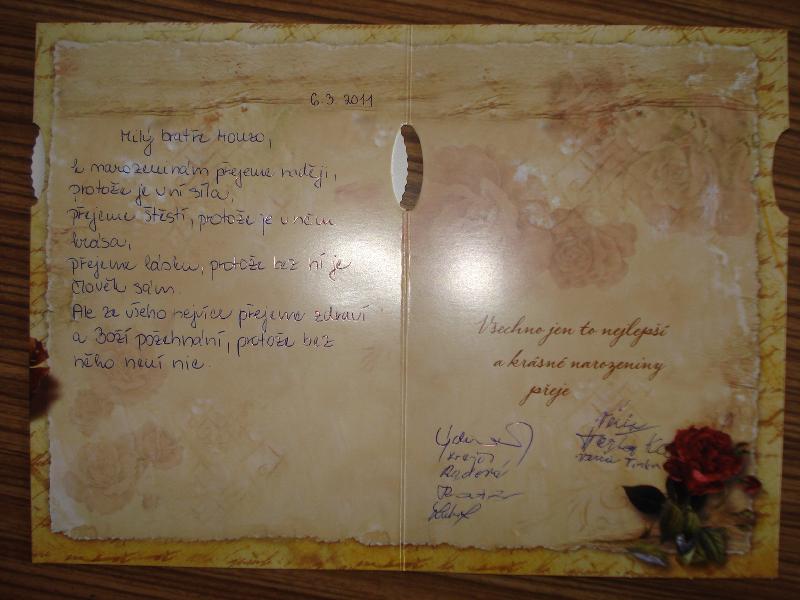 6.3.2011
Milý bratře Honzo,
k narozeninám přejeme naději,
protože je v ní síla,
přejeme štěstí, protože je v něm
krása,
přejeme lásku, protože bez ní je
člověk sám.
Ale ze všeho nejvíce přejeme zdraví
a Boží požehnání, protože bez
něho není nic.
Všechno jen to nejlepší
a krásné narozeniny
přeje